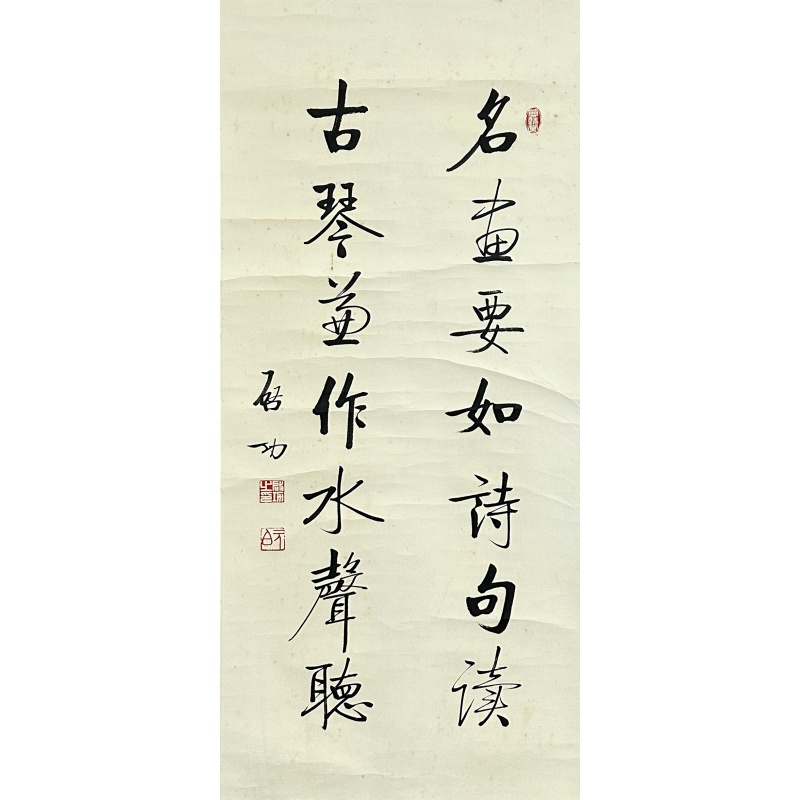 名畫要如詩句读
古琴兼作水聲聽
启功